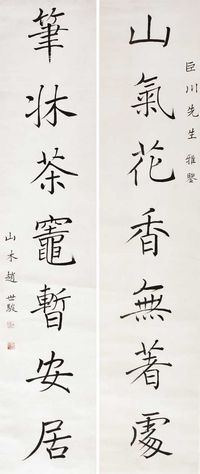 巨川先生雅鑒
山氣花香無著處
筆牀茶竈暫安居
山木趙世駿